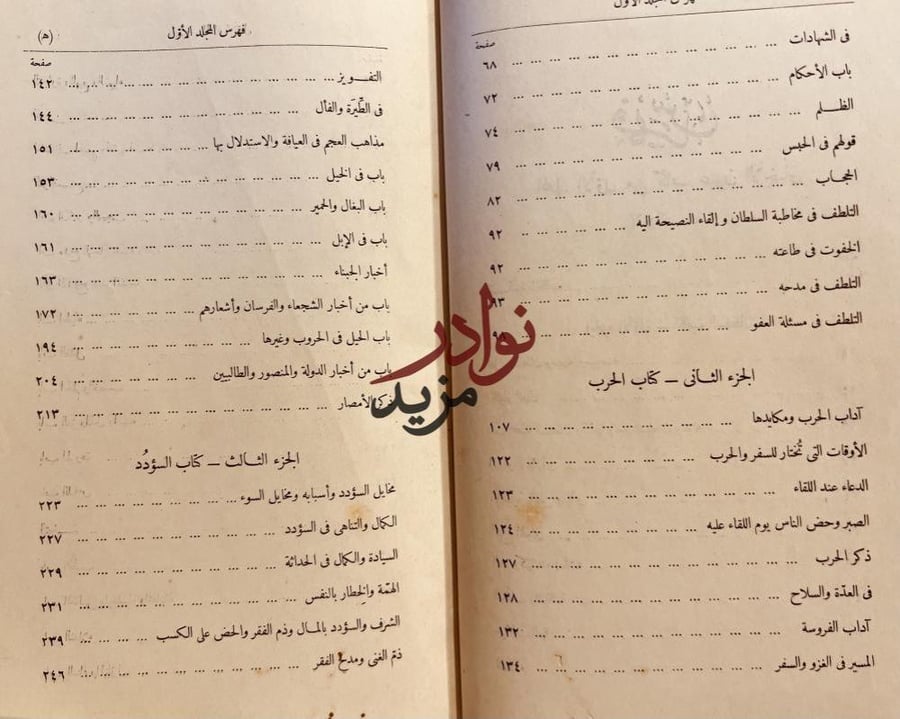 فهرس المجلد الأول
صفحة
فى الشهادات ... ... ... ... ... ... ... ... ... ... ٦٨
باب الأحكام ... ... ... ... ... ... ... ... ... ... ٧٢
الظلم ... ... ... ... ... ... ... ... ... ... ٧٤
قولهم فى الحبس ... ... ... ... ... ... ... ... ... ٧٩
الحجاب ... ... ... ... ... ... ... ... ... ... ٨٢
التلطف فى مخاطبة السلطان وإلقاء النصيحة اليه ... ... ... ... ... ٩٢
الخفوت فى طاعته ... ... ... ... ... ... ... ... ... ٩٢
التلطف فى مدحه ... ... ... ... ... ... ... ... ... ٩٣
التلطف فى مسئلة العفو ... ... ... ... ... ... ...
الجزء الثانى – كتاب الحرب
آداب الحرب ومكايدها ... ... ... ... ... ... ... ... ١٠٧
الأوقات التى تُختار للسفر والحرب ... ... ... ... ... ... ١٢٢
الدعاء عند اللقاء ... ... ... ... ... ... ... ... ١٢٣
الصبر وحض الناس يوم اللقاء عليه ... ... ... ... ... ... ١٢٤
ذكر الحرب ... ... ... ... ... ... ... ... ... ١٢٧
فى العدّة والسلاح ... ... ... ... ... ... ... ... ١٢٨
آداب الفروسة ... ... ... ... ... ... ... ... ١٣٢
المسير فى الغزو والسفر ... ... ... ... ... ... ... ١٣٤
فهرس المجلد الأول (ه)
صفحة
التفويز ... ... ... ... ... ... ... ... ... ... ١٤٢
فى الطِّيَرَة والفأل ... ... ... ... ... ... ... ... ١٤٤
مذاهب العجم فى العيافة والاستدلال بها ... ... ... ... ... ١٥١
باب فى الخيل ... ... ... ... ... ... ... ... ... ١٥٣
باب البغال والحمير ... ... ... ... ... ... ... ... ١٦٠
باب فى الإبل ... ... ... ... ... ... ... ... ... ١٦١
أخبار الجبناء ... ... ... ... ... ... ... ... ... ١٦٣
باب من أخبار الشجعاء والفرسان وأشعارهم ... ... ... ... ١٧٢
باب الحيل فى الحروب وغيرها ... ... ... ... ... ... ١٩٤
باب من أخبار الدولة والمنصور والطالبيين ... ... ... ... ٢٠٤
ذكر الأمصار ... ... ... ... ... ... ... ... ... ٢١٣
الجزء الثالث – كتاب السؤدُد
مخايل السؤدد وأسبابه ومخايل السوء ... ... ... ... ... ٢٢٣
الكمال والتناهى فى السؤدد ... ... ... ... ... ... ... ٢٢٧
السيادة والكمال فى الحداثة ... ... ... ... ... ... ... ٢٢٩
الهمّة والخِطار بالنفس ... ... ... ... ... ... ... ... ٢٣١
الشرف والسؤدد بالمال وذم الفقر والحض على الكسب ... ... ... ٢٣٩
ذمّ الغنى ومدح الفقر ... ... ... ... ... ... ... ... ٢٤٦
نوادر
مزيد